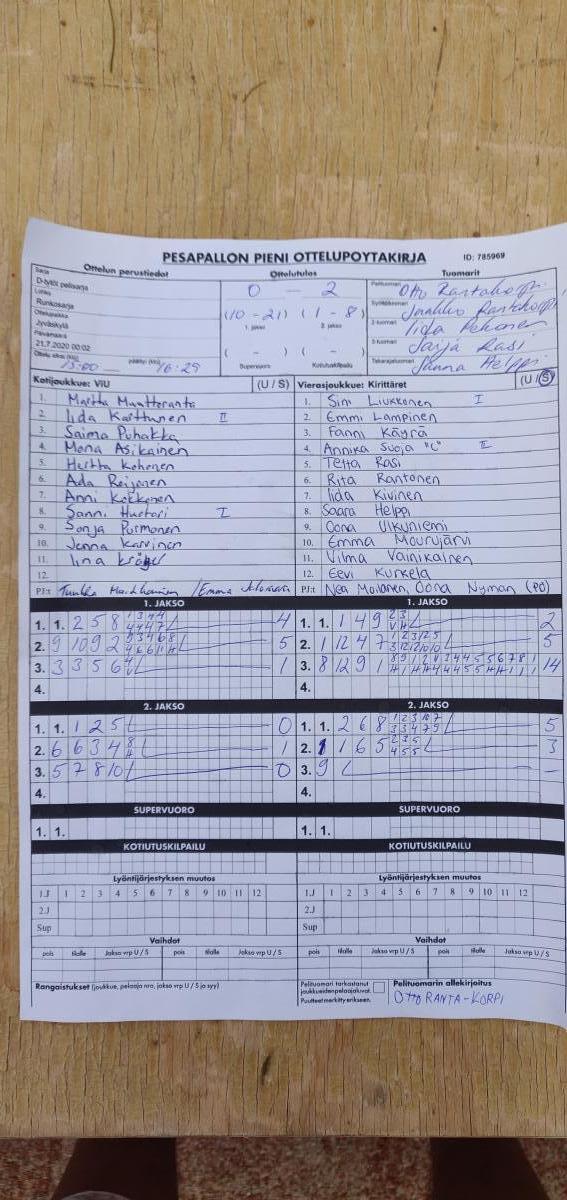 PESAPALLON PIENI OTTELUPOYTAKIRJA ID: 785969
Sarja Ottelun perustiedot Ottelutulos Tuomarit
D-tytöt pelisarja
Lohko
Runkosarja
Ottelupaikka
Jyväskylä
Päivämäärä
21.7.2020 00:02
Ottelu alkoi (klo) 15:00 päättyi (klo) 16:29
0 - 2
(10 - 21) (1 - 8)
1. jakso 2. jakso
( - ) ( - )
Supervuoro Kotiutuskilpailu
Pelituomari Otto Rantakorpi
Syöttötuomari Jaakko Rantakorpi
2-tuomari Iida Pekonen
3-tuomari Saija Rasi
Takarajatuomari Sanna Helppi
Kotijoukkue: ViU (U / S)
1. Martta Muattaranta
2. Iida Karttunen II
3. Saima Puhakka
4. Mona Asikainen
5. Hertta Kohonen
6. Ada Reijonen
7. Anni Kokkonen
8. Sanni Hustari I
9. Sonja Pormonen
10. Jenna Karvinen
11. Iina Kröger
12.
PJ:t
Vierasjoukkue: Kirittäret (U / S)
1. Sini Liukkonen I
2. Emmi Lampinen
3. Fanni Käyrä
4. Annika Suoja "C" II
5. Tetta Rasi
6. Rita Rantonen
7. Iida Kivinen
8. Saara Helpa
9. Oona Ulkuniemi
10. Emma Mourujärvi
11. Vilma Vainikainen
12. Eevi Kurkela
PJ:t Nea Moilanen, Oona Nyman (PO)
1. JAKSO 1. JAKSO
1. 1. 2 5 8 4
2. 9 10 9 2 5
3. 3 3 5 6 1
4.
1. 1. 1 4 9 2
2. 1 12 4 7 5
3. 8 12 9 1 14
4.
2. JAKSO 2. JAKSO
1. 1. 1 2 5 0
2. 6 6 3 4 1
3. 5 7 8 10 0
4.
1. 1. 2 6 8 5
2. 1 1 6 5 3
3. 9 -
4.
SUPERVUORO SUPERVUORO
1. 1. 1. 1.
KOTIUTUSKILPAILU KOTIUTUSKILPAILU
Lyöntijärjestyksen muutos Lyöntijärjestyksen muutos
1.J 1 2 3 4 5 6 7 8 9 10 11 12 1.J 1 2 3 4 5 6 7 8 9 10 11 12
2.J 2.J
Sup Sup
Vaihdot Vaihdot
pois tilalle Jakso vrp U / S pois tilalle Jakso vrp U / S pois tilalle Jakso vrp U / S pois tilalle Jakso vrp U / S
Rangaistukset (joukkue, pelaaja nro, jakso vrp U / S ja syy)
Pelituomari tarkastanut
joukkueidenpelaajaluvat.
Puutteet merkitty erikseen.
Pelituomarin allekirjoitus
OTTO RANTA-KORPI